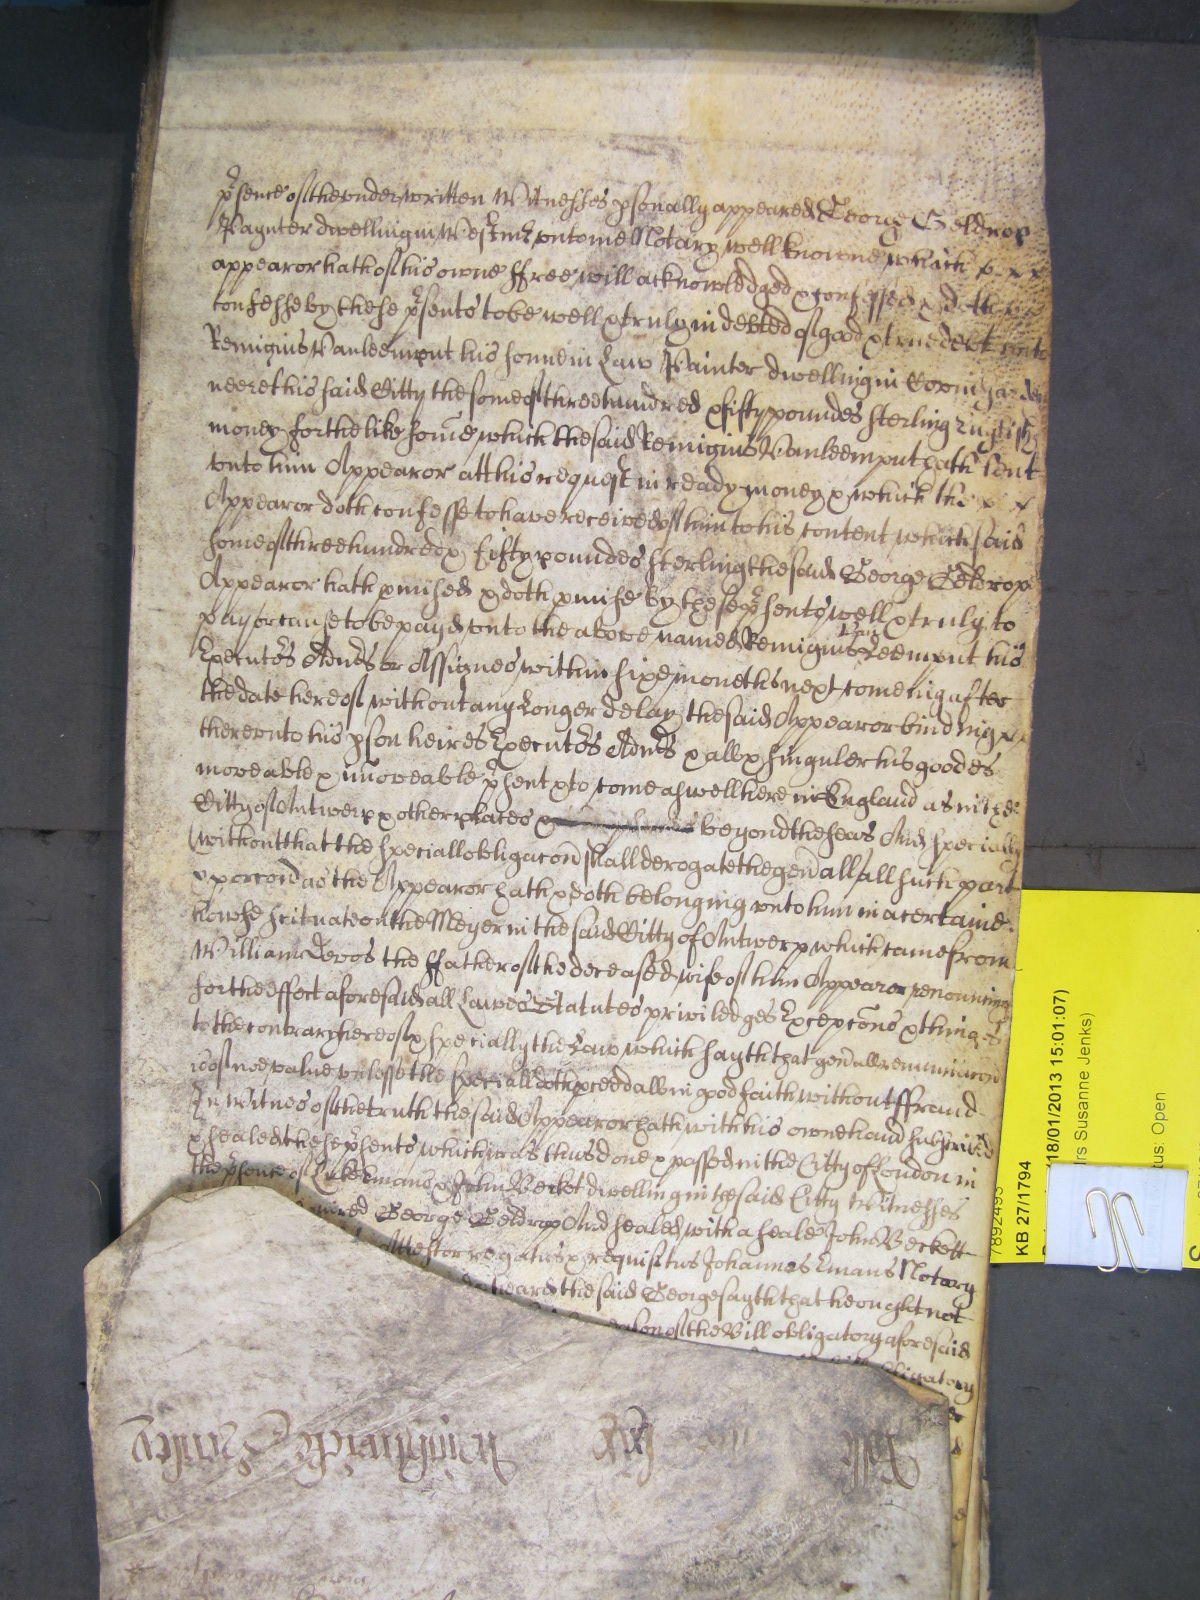 p̄sence of the underwritten Witnesses psonally appeared George Geldrop
Paynter dwelling in Westm̄ unto me Notary well knowne which
appearor hath of his owne ffree will acknowledged & confessed & doth
confesse by these p̄sents to be well & truly indebted of good & true debt unto
Remigius Vanleemput his sonne in Law Painter dwelling in Coven garden
neere this said Citty the some of three hundred & fifty poundes sterling English
money for the like some which the said Remigius Vanleemput hath lent
unto him Appearor att his request in ready money & which the
Appearor doth confesse to have received of him to his content which said
some of three hundred & fifty poundes sterling the said George Geldrop
Appearor hath pmised & doth pmise by these p̄sents well & truly to
pay or cause to be payd unto the above named Remigius Van Leemput his
Executors Adm̄s or Assignes within sixe moneths next comeing after
the date hereof without any Longer delay the said Appearor binding
thereunto his pson heires Executors Adm̄s & all & singuler his goodes
moveable & unmoveable p̄sent & to come aswell here in England as in the
Citty of Antwerp & other places beyond the seas And specially
without that the speciall obligacōn shall derogate the gen̄all all such part
or porcōn as the Appearor hath & doth belonging unto him in a certaine
howse scituate on the Meyer in the said Citty of Antwerp which came from
William Devos the ffather of the deceased wife of him Appearor renouncing
for the effect aforesaid all Lawes Statutes priviledges Excepcōns & things
to the contrary hereof & specially the Law which sayth that gen̄all renunciacōn
is of noe value unlesse the speciall doth pceed all in good faith without ffraud
In Witnes of the truth the said Appearor hath with his owne hand subscribed
& sealed these p̄sents which was thus done & passed in the Citty of London in
the p̄sence of Luke & John Becket dwelling in the said Citty Witnesses
George Geldrop And sealed with a seale John Beckett
Attestor rogatus & requisitus Johannes Emans Notary
heard the said George sayth that he ought not
of the Bill obligatory aforesaid
obligatory
18/01/2013 15:01:07)
rs Susanne Jenks)
tus: Open
KB 27/1794